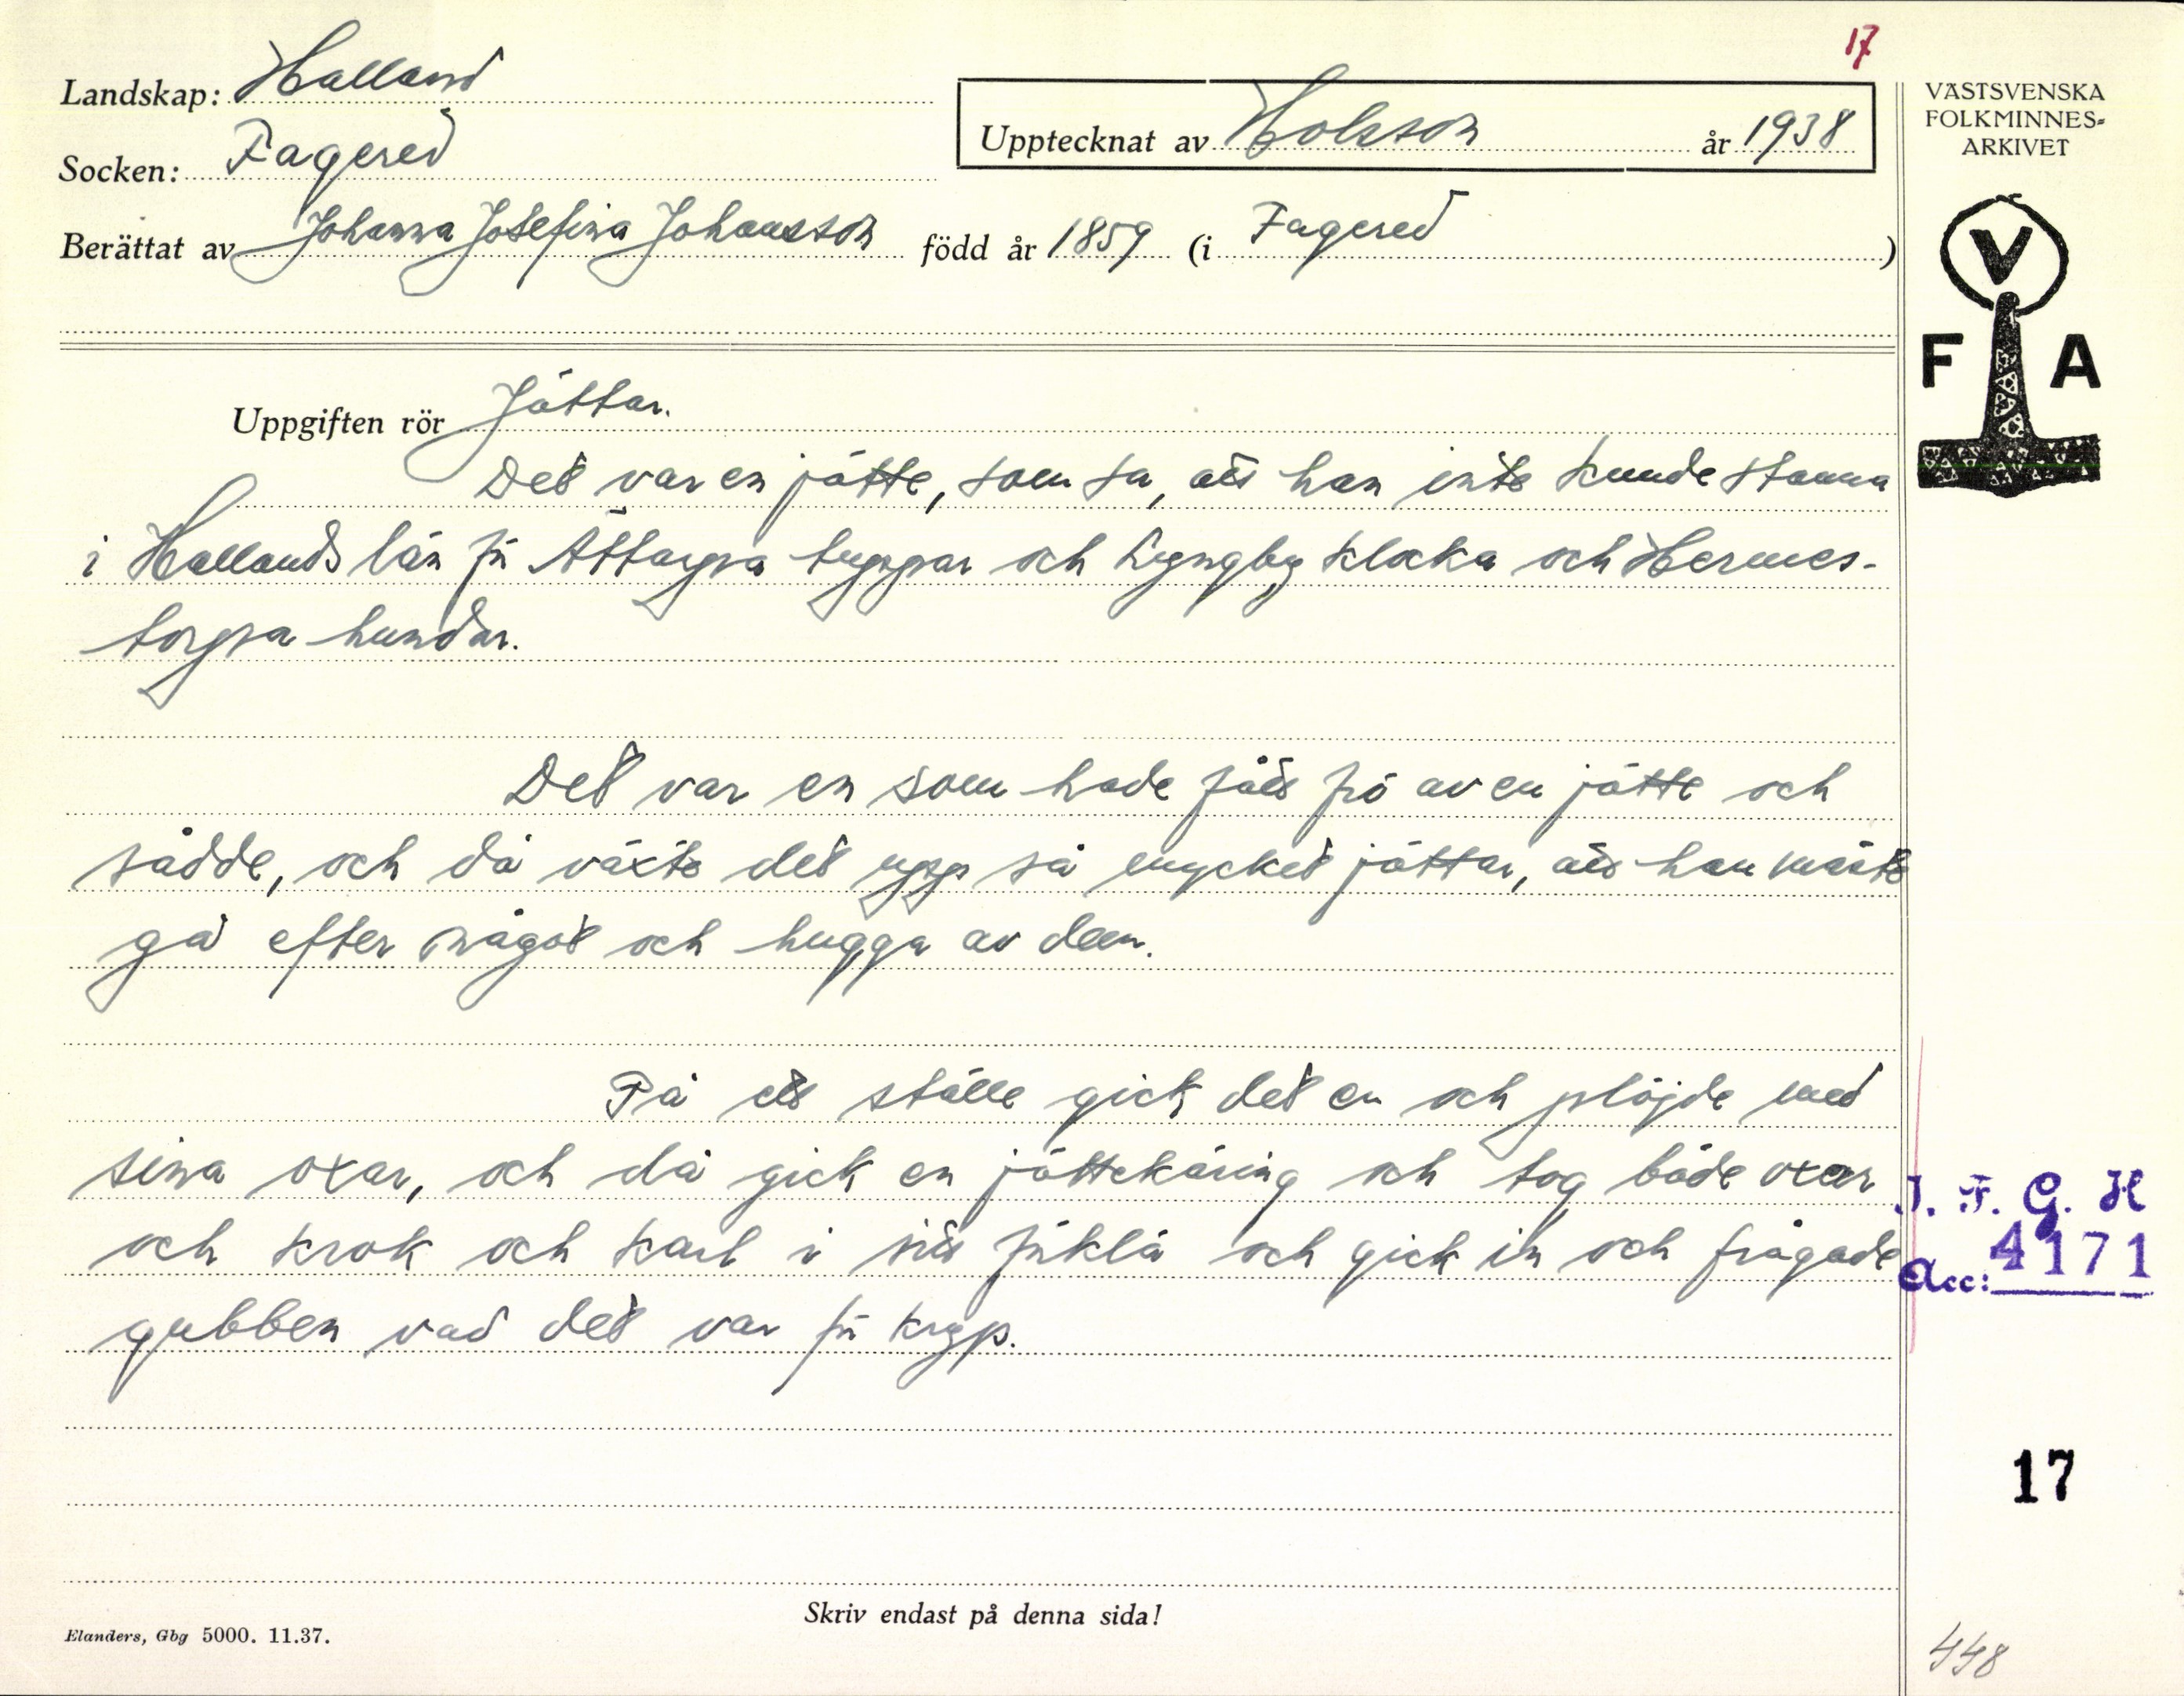 17
Landskap: Halland
Upptecknat av Holsson år 1938
Socken: Fagered
Berättat av Johanna Josefina Johansson född år 1859 (i Fagered)
VÄSTSVENSKA
FOLKMINNES=
ARKIVET
V
F A
Uppgiften rör Jättar.
Det var en jätte, som sa, att han inte kunde stanna
i Hallands län för tuppar och Lyngby klocka och Hermes-
torpa hundar.
Det var en som hade fått frö av en jätte och
sådde, och då växte det upp så mycket jättar, att han måste
gå efter något och hugga av dem.
På ett ställe gick det en och plöjde med
sina oxar, och då gick en jättekäring och tog både oxar
och krok och karl i sitt förklä och gick in och frågade
gubben vad det var för kryp.
I. F. G. H
Acc: 4171
17
Skriv endast på denna sida!
Elanders, Gbg 5000. 11.37.
448